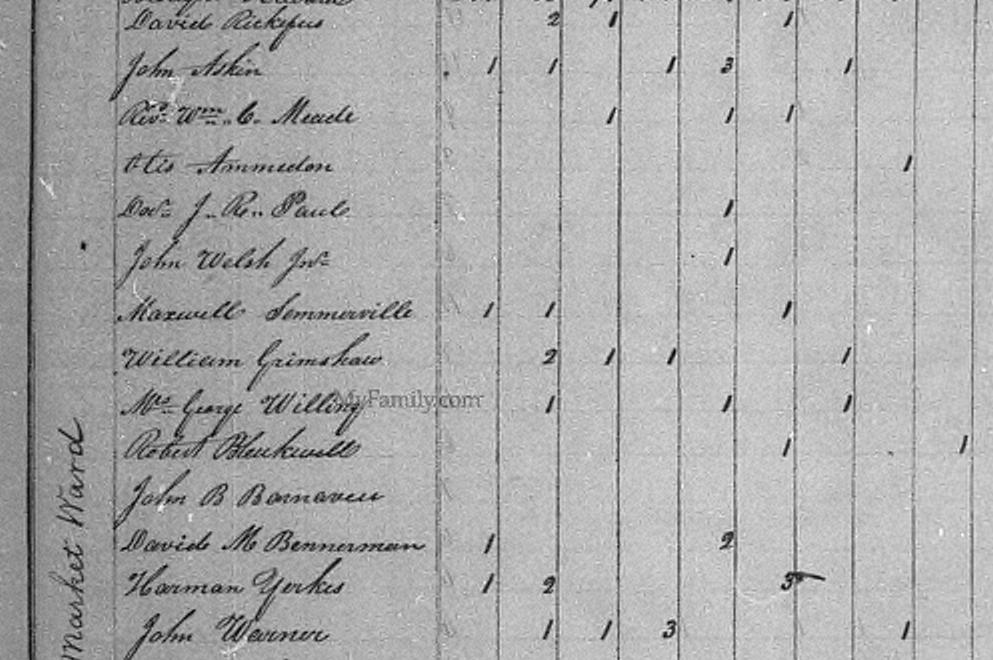 David Rickefus 2 1 1
John Askin 1 1 1 3 1
Revd. Wm. C. Meade 1 1 1
Otis Ammedon 1
Docr. J. R. Paul 1
John Welsh Jnr. 1
Maxwell Sommerville 1 1 1
William Grimshaw 2 1 1 1
Mrs. George Willing 1 1 1
MyFamily.com
Robert Bleukwell 1 1
John B Barnaveu
David M Bennerman 1 2
Harman Yerkes 1 2 3
John Warner 1 1 3 1
Market Ward